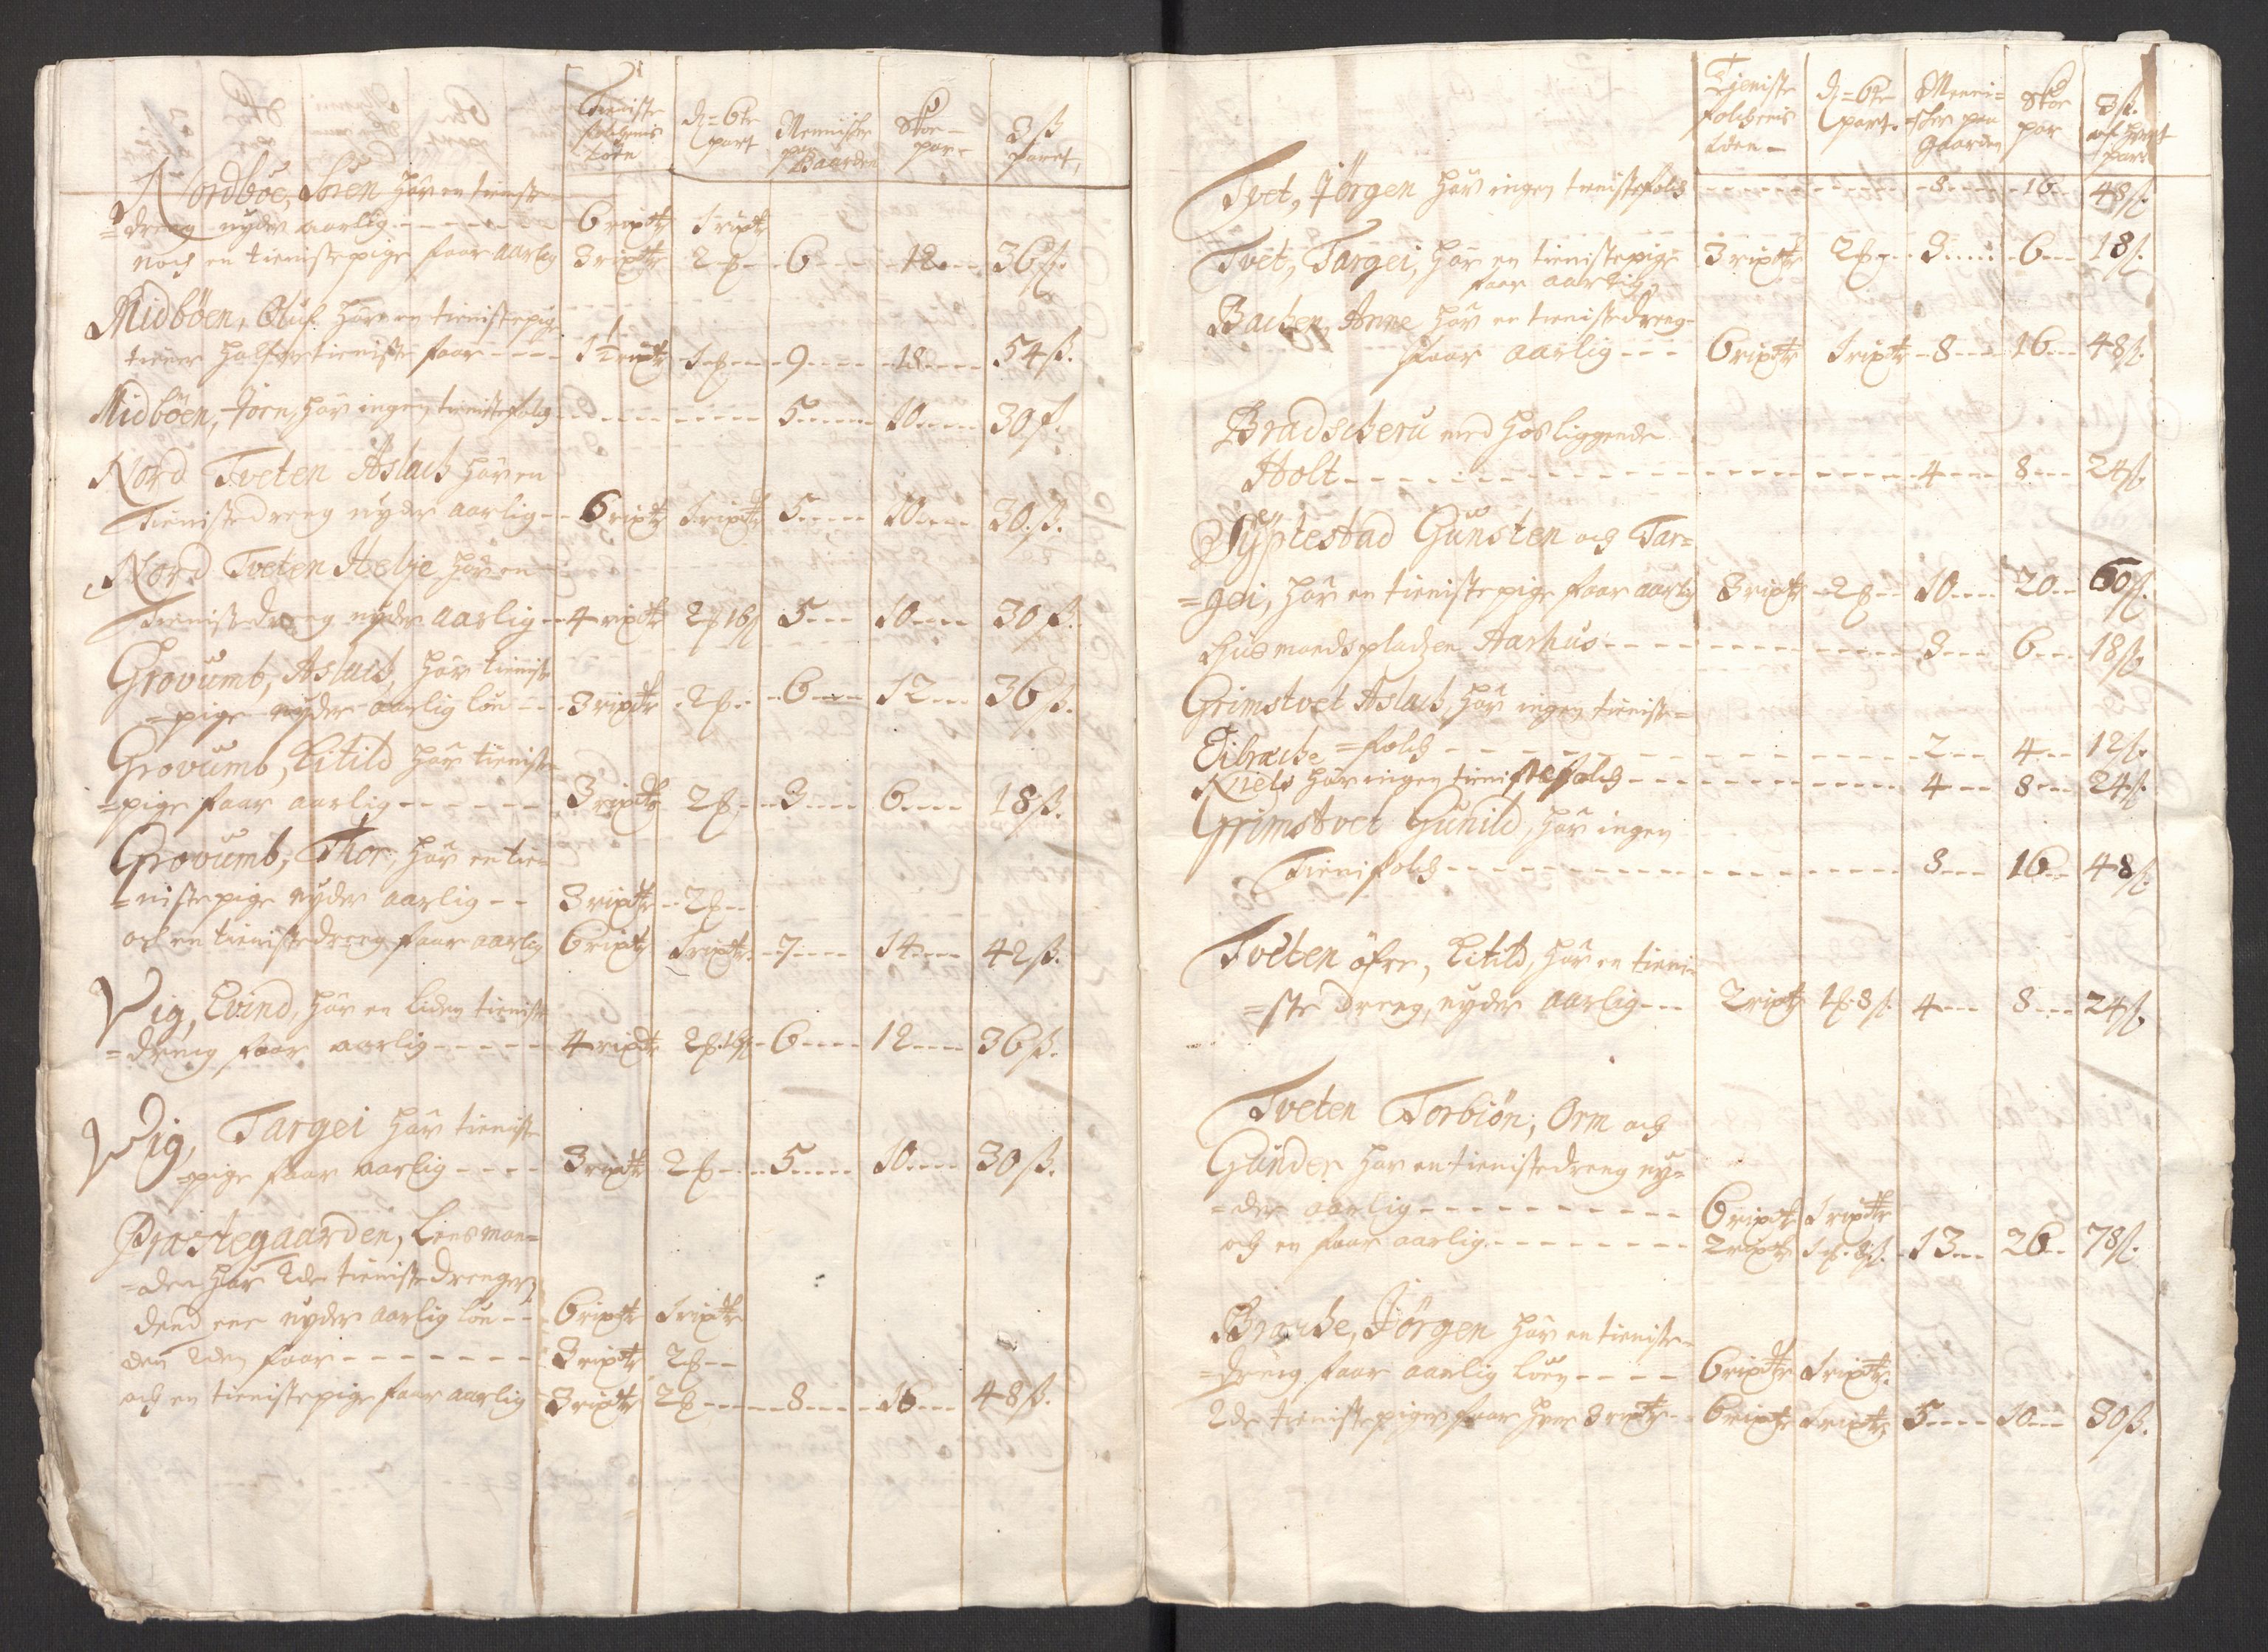 Tieniste folchenis Löen | d: 6te part | Mennischer paa Gaarden | Skoe par | 3 ß paret
Nordböe, Sören har en tieniste
=dreng nyder aarlig - - - - - 6 rixdr 1 rixdr
noch en tienistepige faar aarlig 3 rixdr 2 - 6 - 12 - 36 ß.
Midböen, Oluf har en tienistepige
tiener halfve tieniste faar - - - 1½ rixdr 1 - 9 - 18 - 54 ß.
Midböen, Jörn, har ingen tienistefolch - - - 5 - 10 - 30 ß.
Nord Tveten Aslach har en
Tienistedreng nyder aarlig - - 6 rixdr 1 rixdr 5 - 10 - 30 ß.
Nord Tveten Helje har en
Tienistedreng nyder aarlig - 4 rixdr 2 16 ß 5 - 10 - 30 ß.
Grovumb, Aslach, har tieniste
=pige nyder aarlig lön - - 3 rixdr 2 - 6 - 12 - 36 ß.
Grovumb, Kitild har tieniste
=pige faar aarlig - - - - - 3 rixdr 2 - 3 - 6 - 18 ß.
Grovumb, Thor, har en tie=
=nistepige nyder aarlig - - 3 rixdr - 2 - -
och en tienistedreng faar aarlig 6 rixdr 1 rixdr - 7 - 14 - 42 ß.
Vig, Evind, har en liden tieniste
=dreng faar aarlig - - - - 4 rixdr 2 16 ß - 6 - 12 - 36 ß.
Vig, Targei har tieniste
=pige faar aarlig - - - - 3 rixdr 2 - 5 - 10 - 30 ß.
Præstegaarden, Lensman=
=den har 2de tienistedrenger,
dend ene nyder aarlig lön - - 6 rixdr 1 rixdr
den 2den faar - - - - - - - 3 rixdr 2 - -
och en tienistepige faar aarlig 3 rixdr 2 - 8 - 16 - 48 ß.
Tjeniste folchenis Löen - | d: 6te part. | Menni=scher paa Gaarden | Skoe par | 3 ß. af hvert par
Tvet, Jörgen har ingen tienistefolch - - - 8 - 16 - 48 ß.
Tvet, Targei, har en tienistepige 3 rixdr 2 - 3 - 6 - 18 ß.
faar aarlig
Bachen, Anne har en tienistedreng
faar aarlig - - - 6 rixdr 1 rixdr - 8 - 16 - 48 ß.
Bradscheru med hosliggende
Holt - - - - - - - - - 4 - 8 - 24 ß.
Gunsten och Tar=
=gei, har en tienistepige faar aarlig 3 rixdr - 2 - 10 - 20 - 60 ß.
Husmandspladzen Aarhus - - - - 3 - 6 - 18 ß
Grimstvet Aslach, har ingen tieniste=
=folch - - - - - - - - - 2 - 4 - 12 ß.
Eibræche
Niels har ingen tienistefolch - - - - 4 - 8 - 24 ß.
Grimstvet Gunild, har ingen
Tienifolch - - - - - - - - - 8 - 16 - 48 ß.
Tveten öfre, Kitild, har en tieni=
=ste dreng, nyder aarlig - - - 2 rixdr 1 8 ß. 4 - 8 - 24 ß.
Tveten Torbiön, Orm och
Gunder har en tienistedreng ny=
=der aarlig - - - - - - - - - 6 rixdr 1 rixdr
och en faar aarlig - - - - - - 2 rixdr 1 8 ß. - 13 - 26 - 78 ß.
Bræche, Jörgen har en tieniste=
=dreng faar aarlig löen - - - - 6 rixdr 1 rixdr.
2de tienistepiger faar hver 3 rixdr - 6 rixdr 1 rixdr, 5 - 10 - 30 ß.